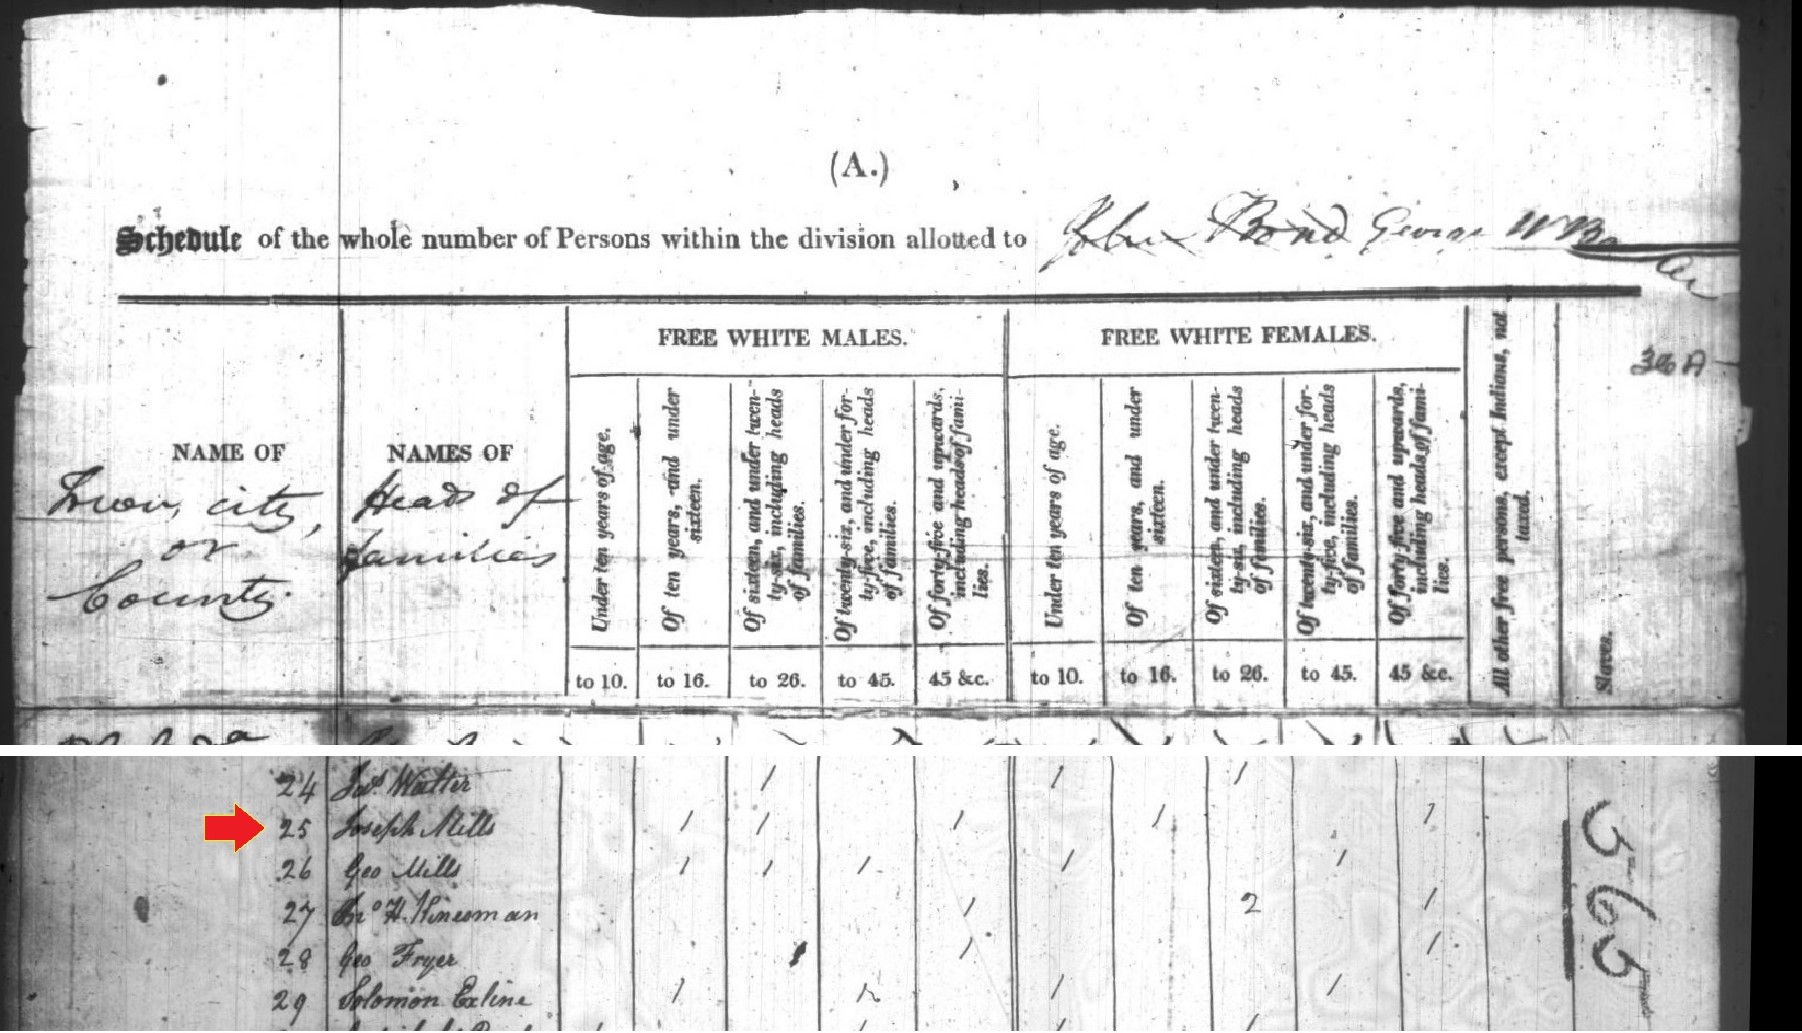 (A.)
Schedule of the whole number of Persons within the division allotted to John Bond George W
FREE WHITE MALES. FREE WHITE FEMALES.
36 A
NAME OF
Town, city,
or
County.
NAMES OF
Heads of
families
Under ten years of age.
Of ten years, and under
sixteen.
Of sixteen, and under twen-
ty-six, including heads
of families.
Of twenty-six, and under for-
ty-five, including heads
of families.
Of forty-five and upwards,
including heads of fami-
lies.
Under ten years of age.
Of ten years, and under
sixteen.
Of sixteen, and under twen-
ty-six, including heads
of families.
Of twenty-six, and under for-
ty-five, including heads
of families.
Of forty-five and upwards,
including heads of fami-
lies.
All other free persons, except Indians, not
taxed.
Slaves.
to 10. to 16. to 26. to 45. 45 &c. to 10. to 16. to 26. to 45. 45 &c.
24 Jas Watter 1 1 1
25 Joseph Mills 1 1 1 1 1
26 Geo Mills 1 1 1 1 1
27 Jno H. Kinesman 1 2 1
28 Geo Fryer 1 1
29 Solomon Exline 1 1 1
565